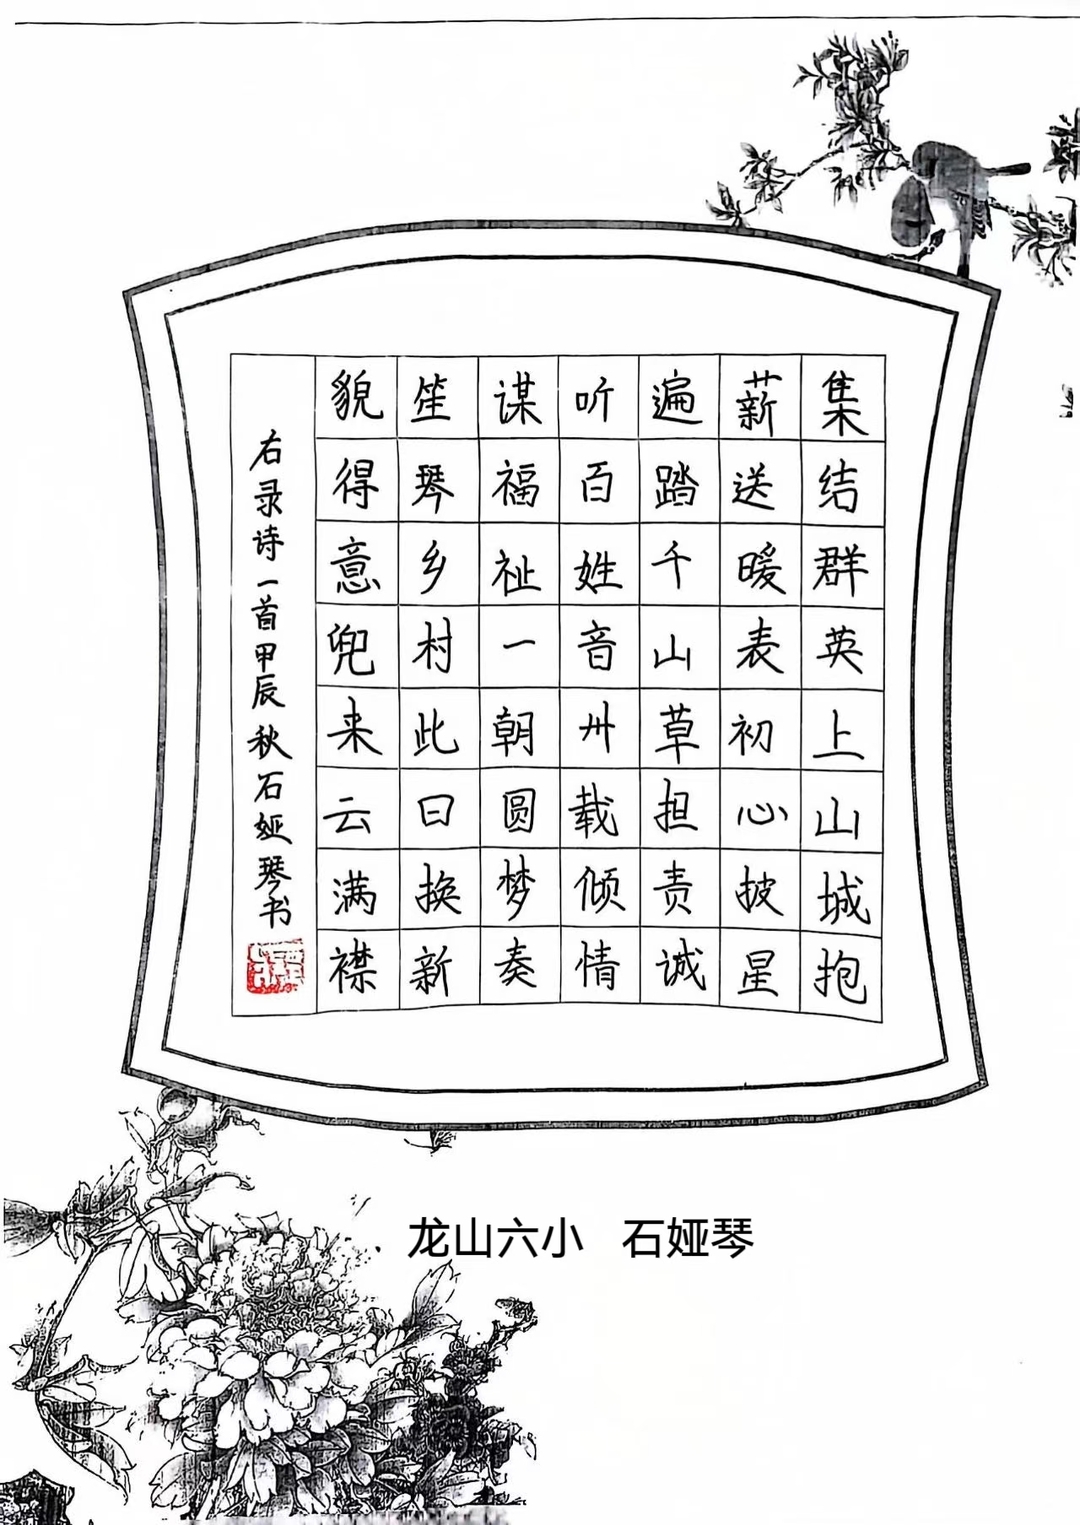 集结群英上山城抱
薪送暖表初心披星
遍踏千山草担责诚
听百姓音卅载倾情
谋福祉一朝圆梦奏
笙琴乡村此日换新
貌得意兜来云满襟
右录诗一首甲辰秋石娅琴书
龙山六小 石娅琴